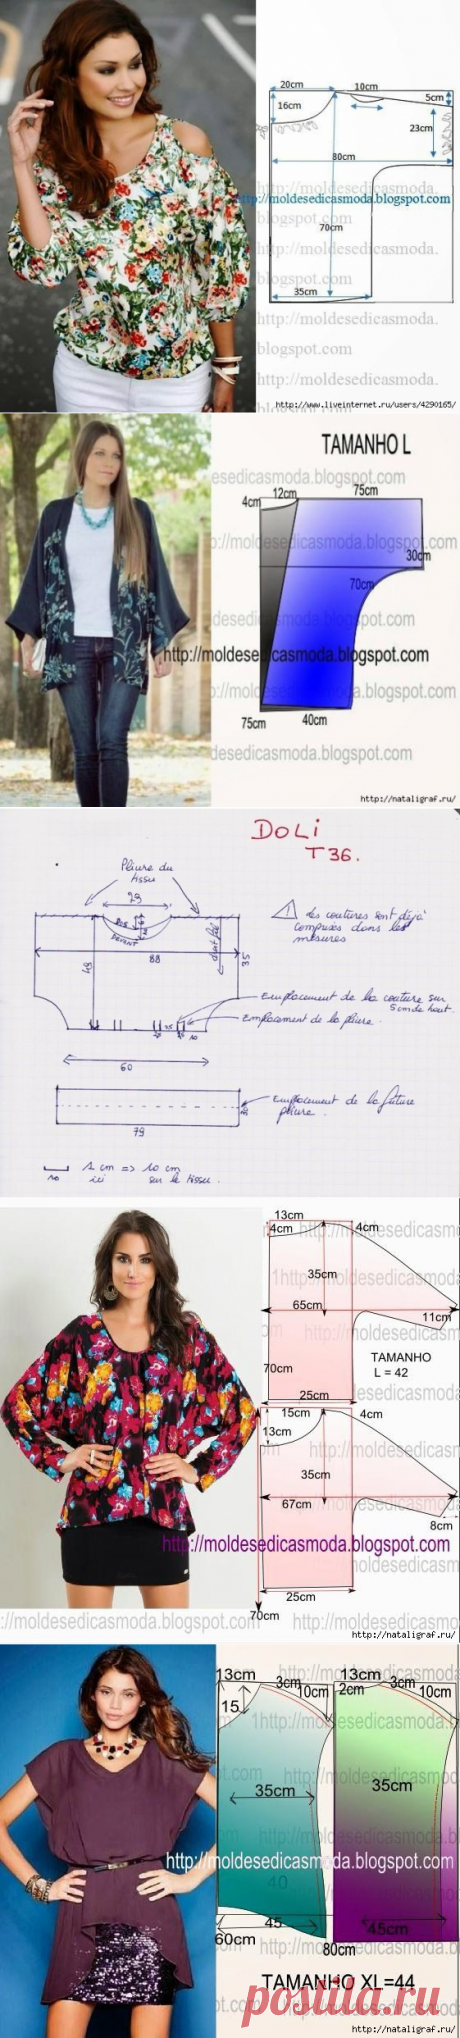 20cm
10cm
5cm
16cm
23cm
80cm
http://moldesedicasmoda.blogspot.com
70cm
blogspot.com
http://moldesedicasmoda.
blogspot.com
35cm
http://moldesedicasmoda.
blogspot.com
http://moldesedicasmoda.
http://www.liveinternet.ru/users/4290165/
TAMANHO L
desedicasmoda.blogspot.com
4cm
12cm
75cm
://moldesedicasmoda.blogspot.com
30cm
70cm
http://moldesedicasmoda.blogspot.com
75cm
40cm
desedicasmoda.blogspot.com
http://nataligraf.ru/
DOLI
T36.
Pliure du
tissu
29
DOS
DEVANT
droit fil
88
48
35
les coutures sont déjà
comprises dans les
mesures
Emplacement de la couture sur
5cm de haut.
Emplacement de la pliure.
10
60
Emplacement de la future
pliure.
30
79
1 cm => 10 cm
10
ici
sur le tissu.
13cm
4cm
4cm
35cm
65cm
11cm
70cm
TAMANHO
L = 42
25cm
15cm
4cm
13cm
35cm
67cm
8cm
http://moldesedicasmoda.blogspot.com
25cm
70cm
://moldesedicasmoda.blogspot.com
http://moldesedicasmoda
http://nataligraf.ru/
13cm
3cm
10cm
15
13cm
3cm
2cm
10cm
35cm
35cm
http://moldesedicasmoda.blogspot.com
40
45
60cm
45cm
80cm
TAMANHO XL =44
postila.ru
http://nataligraf.ru/